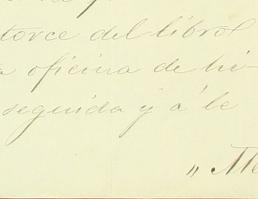 torce del libro
oficina de hi-
seguida y á le